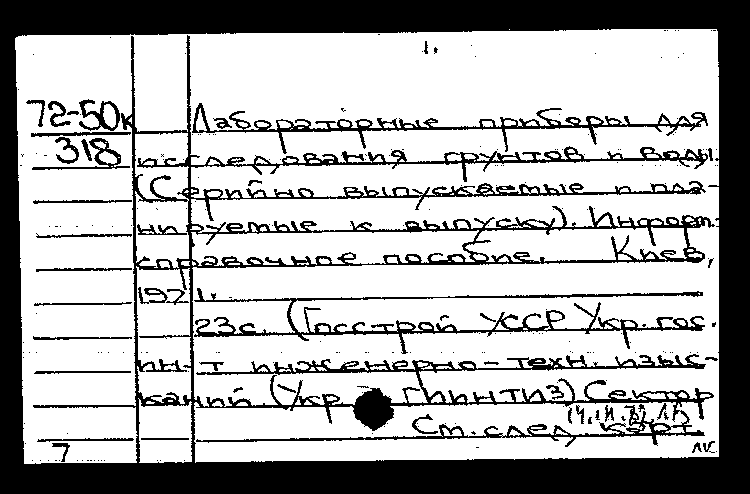 1.
72-50к Лабораторные приборы для
318 исследования грунтов и воды.
(Серийно выпускаемые и пла-
нируемые к выпуску). Информ.-
справочное пособие. Киев,
1971.
23с. (Госстрой УССР Укр. гос.
ин-т инженерно-техн. изыс-
каний. (Укр ГИИНТИЗ) Сектор
См. след. карт.
7